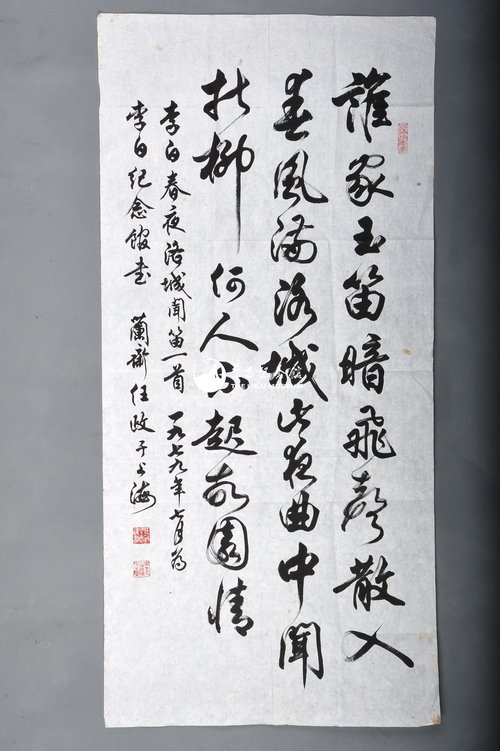 誰家玉笛暗飛聲散入
春風滿洛城此夜曲中聞
折柳何人不起故園情
李白春夜洛城聞笛一首 一九七九年七月為
李白紀念館書 蘭齋任政于上海